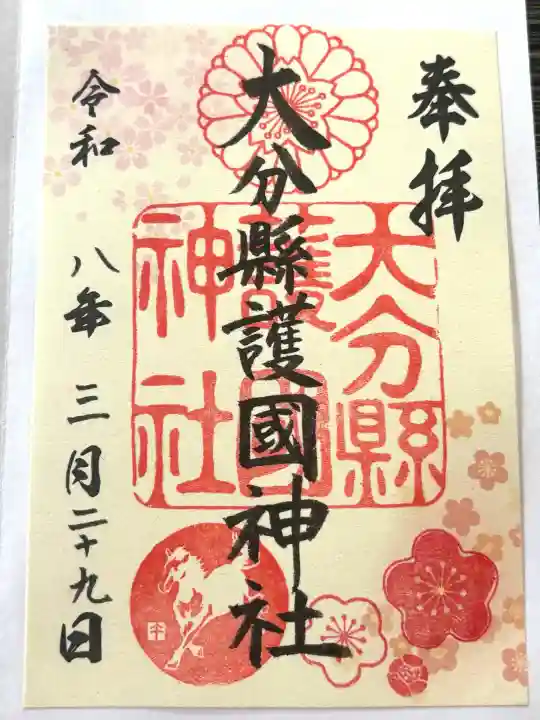 奉拝
大分縣護國神社
大分縣
護國
神社
令和 八年 三月二十九日
午